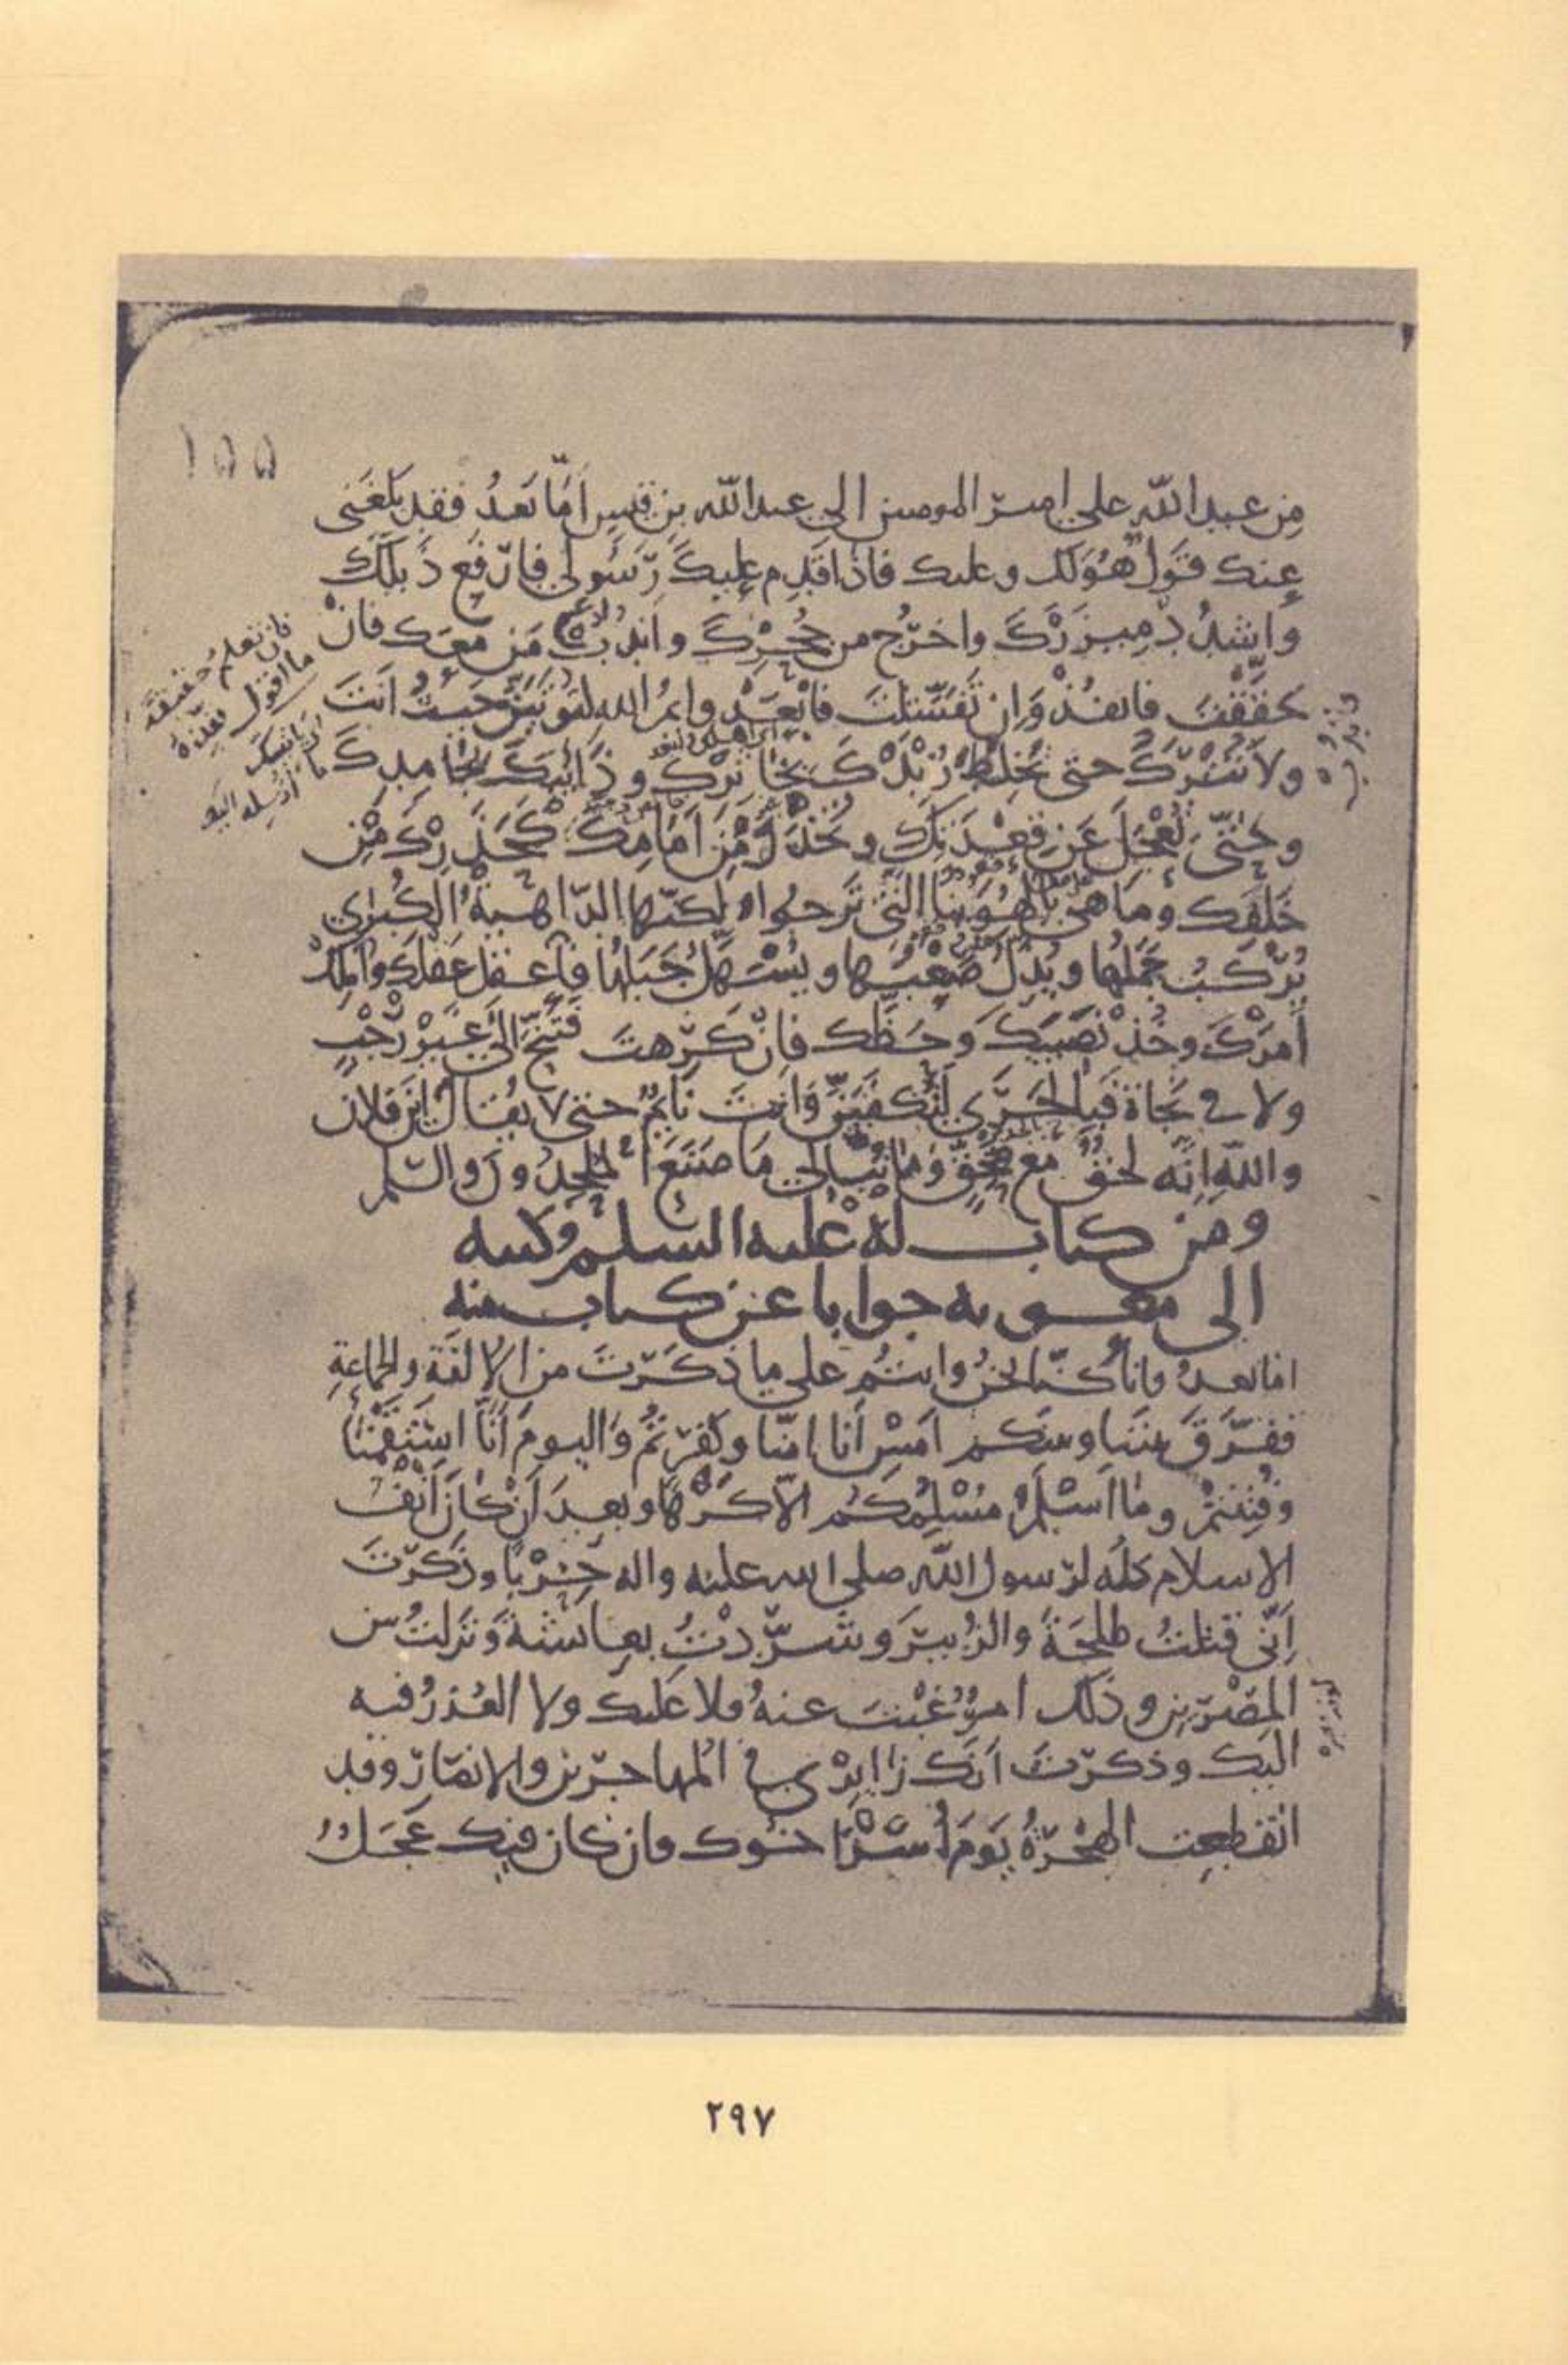 ١٥٥
مِن عبد اللّه علي امير المومنين الي عبد اللّه بن قيس اَمّا بَعدُ فقد بَلغَنى
عنك قَولٌ هُوَ لك وعليك فاذا قَدِم عليكَ رَسُولى فارفع ذَيلَكَ
واشدُد مِيزَرَكَ واخرُج من جُحرِكَ واندُب مَن مَعَك فانْ
حَقَّقتَ فانفُذْ وَاِن تَفَشَّلتَ فابْعَدْ وايمُ الله لتوتَيَنَّ حَيثُ اَنتَ
ولا تُتْرَكُ حتى يُخلَطَ زُبْدُكَ بخاثِرِكَ وذَائِبُكَ بجامِدِكَ
وحتّى تُعْجَلَ عَن قِعْدَتِكَ وتَحْذَرَ مِن اَمَامِكَ كَحَذَرِكَ مِن
خَلفِك ومَا هي بالهُوَينا التي تَرجُوا ولكنّها الدّاهيةُ الكُبرى
يُرْكَبُ جَمَلُها ويُذلُّ صَعْبُها ويُسَهَّلُ جَبَلُها فاعقل عَقلَك وَاملِكْ
اَمرَكَ وخُذْ نَصيبَكَ وحَظَّك فانْ كَرِهتَ فتَنَحَّ الى غَيْر رَحْبٍ
ولا في نَجَاة فبالحَرِي لَتُكفَيَنَّ وَانتَ نايِمٌ حتى لا يُقال اين فلان
واللّهِ اِنّه لحَقٌّ مع مُحِقٍّ ومَا يُبَالي مَا صَنَعَ المُلحِدُون والسّلم
ومن كتاب له عليه السلم كتبه
الى معويه جوابا عن كتاب منه
اما بعدُ فانا كُنّا نحنُ وانتُم على ما ذكَرتَ من الاُلفَة والجَماعةِ
ففَرّقَ بيننا وبينكم اَمسِ اَنا امنّا وكفَرتُم واليومَ اَنّا استَقَمْنا
وفُتِنتُمْ وما اَسْلَمَ مُسْلِمُكُم الّا كَرْهًا وبعدَ اَنْ كانَ اَنفُ
الاسلام كلّه لرسول اللّه صلى الله عليه واله حِزْبًا وذكَرتَ
اَنّى قتلتُ طلحةَ والزُبيرَ وشَرّدْتُ بعائشةَ وَنزلتُ بين
المِصْرَين وذلك امرٌ غِبْتَ عنهُ فلا عَليك ولا العُذرُ فيه
اليك وذكرتَ اَنّك زايرى في المهاجرين والانصار وقد
انقطعت الهِجْرَةُ يَومَ اُسرَ اخوك فان كان فيك عَجَلٌ
٢٩٧